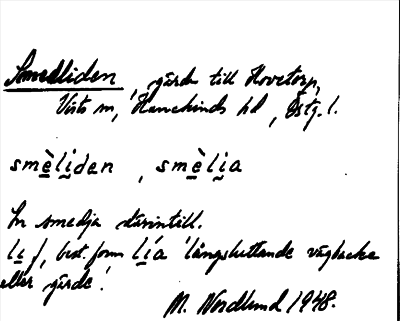 Smedliden, gärde till Hovetorp,
Vists sn, Hanekinds hd, Östg. l.
smè̲lḭdən, smè̲lḭa
En smedja därintill.
li̲ f, best. form lí̲a 'långsluttande vägbacke
eller gärde'.
M. Nordlund 1948.